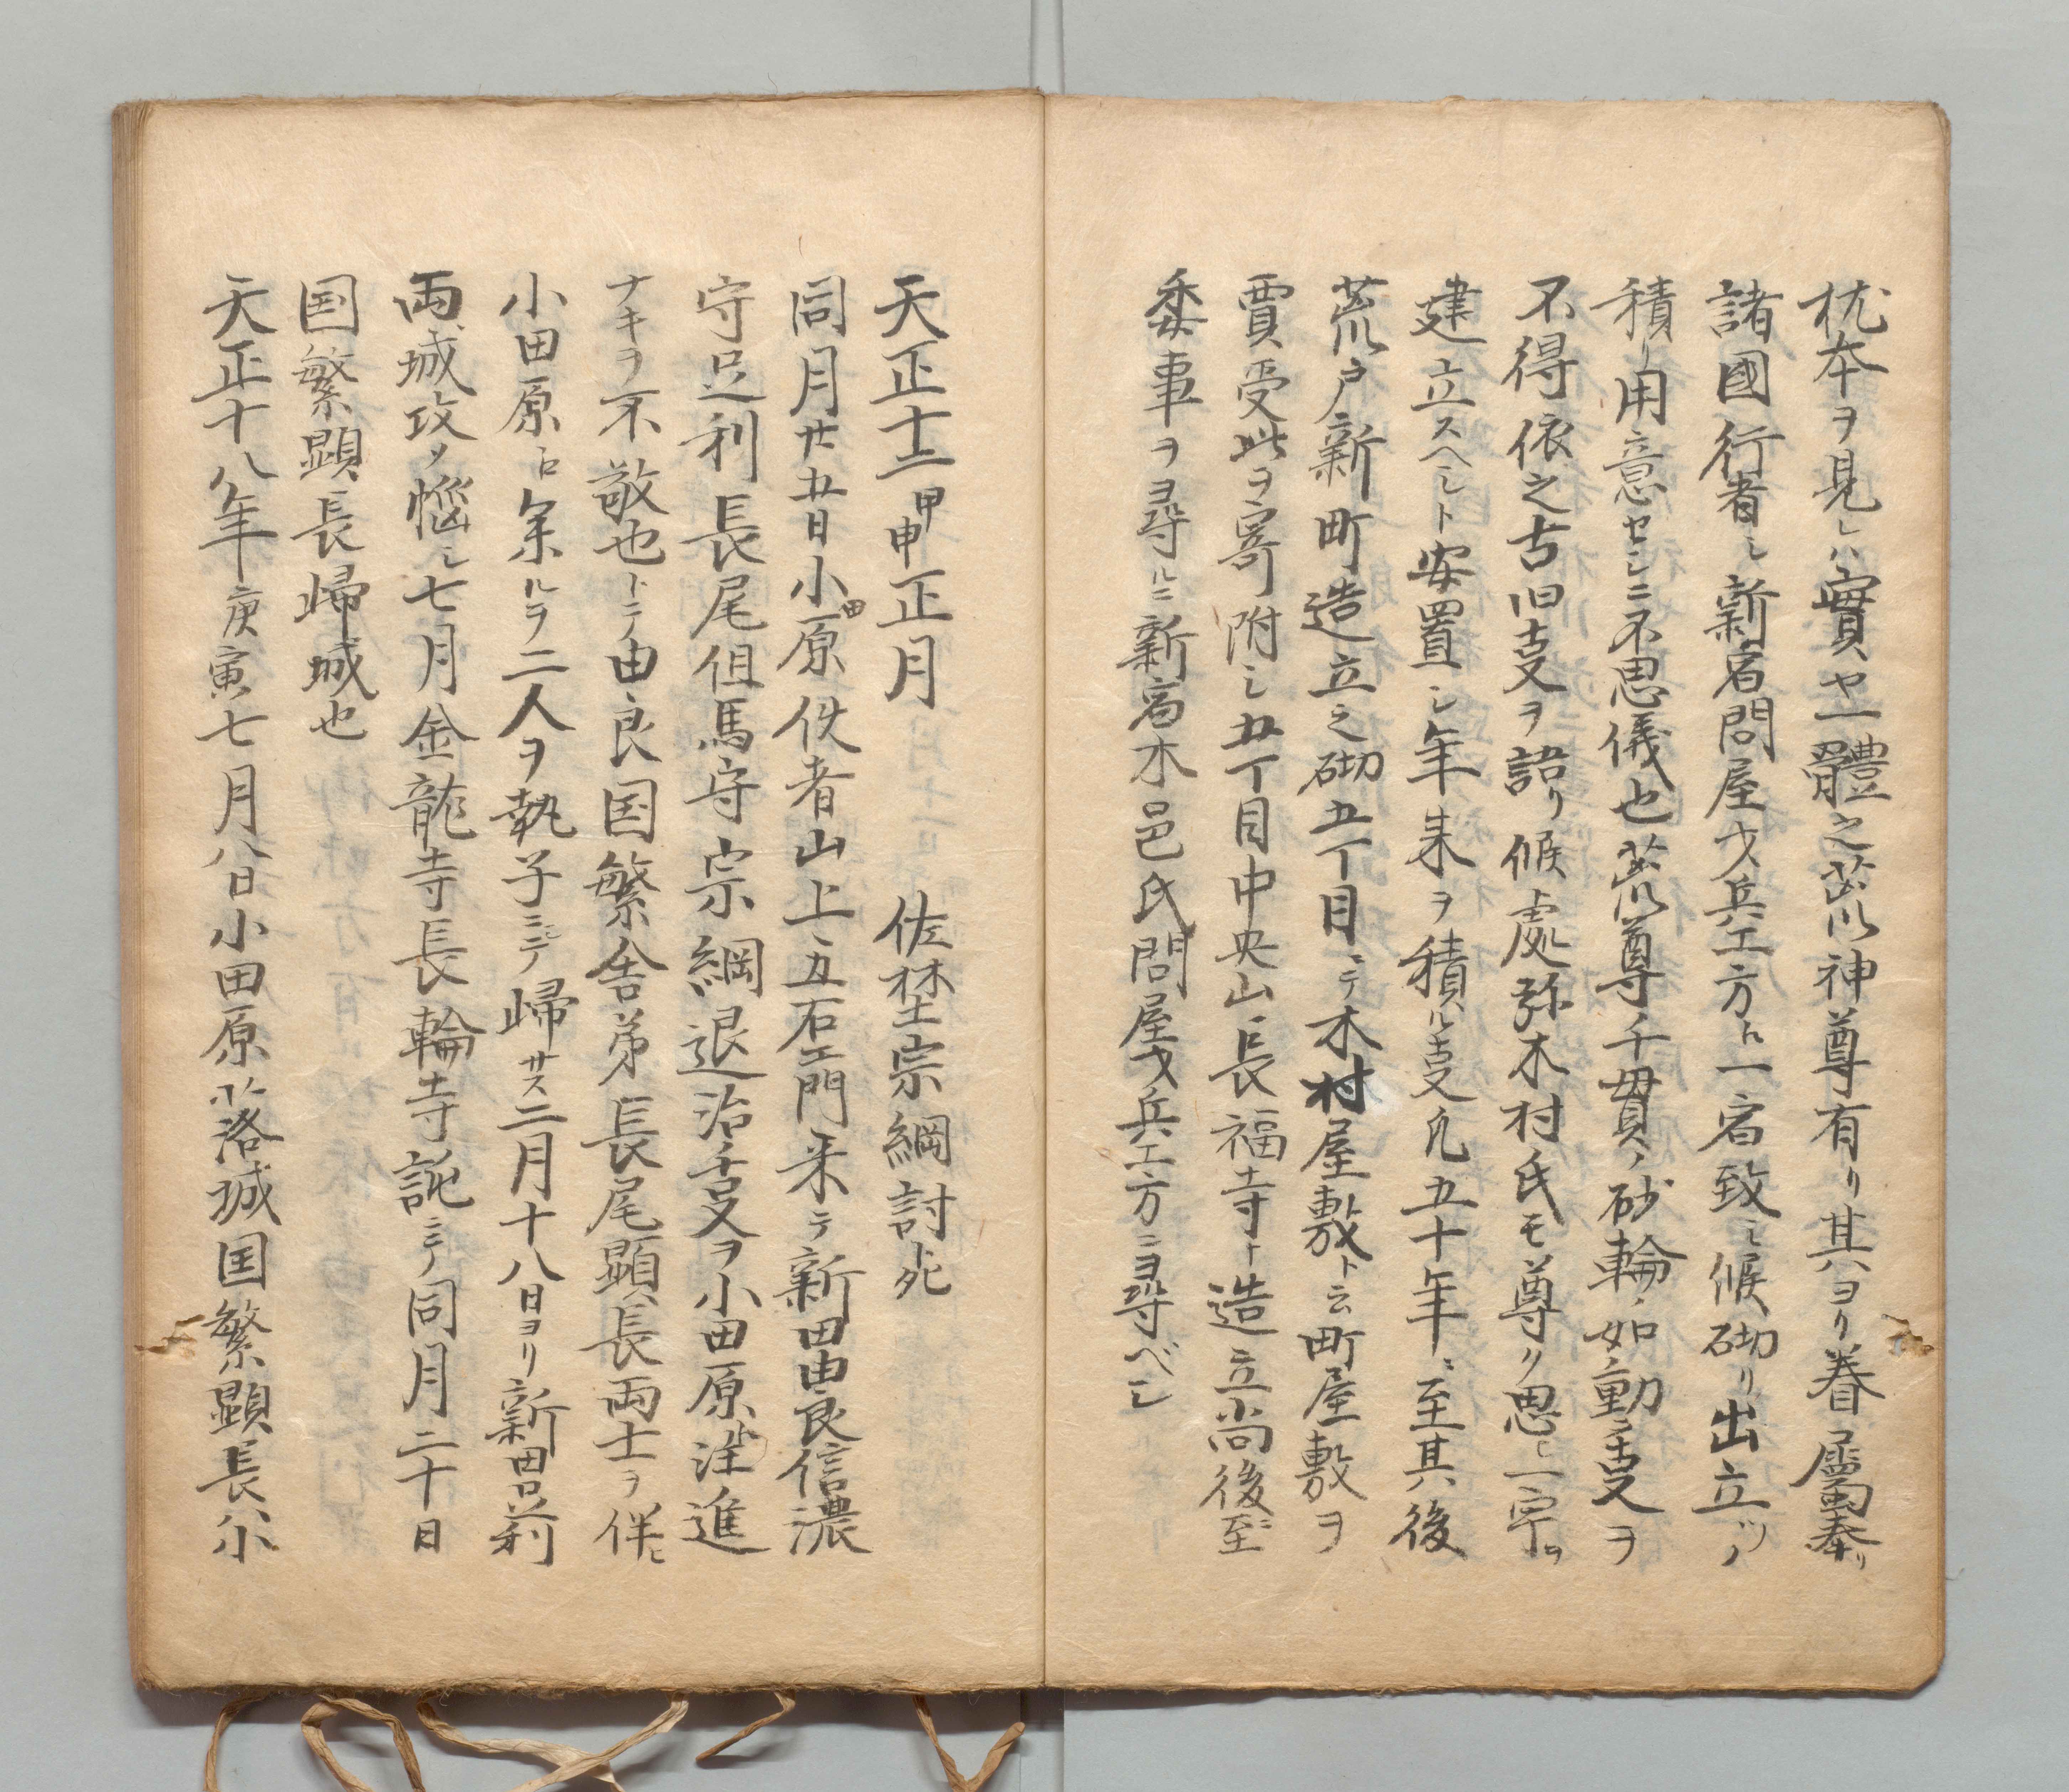 枕本ヲ見レハ實ヤ一體之荒神尊有リ其ヨリ眷屬奉リ
諸國行者シ新宿問屋戈兵エ方ニ一宿致シ候砌リ出立ツノ
積リ用意セシニ不思儀也荒尊千貫ノ砂輪ノ如ク動叓ヲ
不得依之古旧叓ヲ語リ候處弥木村氏モ尊リ思ヒ一宇ヲ
建立スヘシト安置シ年来ヲ積ル叓凡五十年ニ至其後
荒戸新町造立之砌五丁目ニテ木村屋敷ト云町屋敷ヲ
買受此ヲ寄附シ五丁目中央山長福寺ト造立尚後至
委事ヲ尋ルニ新宿木邑氏問屋戈兵エ方ニヨ尋ベシ
天正十二甲申正月 佐埜宗綱討死
同月廿五日小田原佚者山上五右エ門来テ新田由良信濃
守足利長尾但馬守宗綱退治叓ヲ小田原江注進
ナキヲ不敬也トテ由良国繁舎弟長尾顕長両士ヲ伴ヒ
小田原ニ余ルヲ二人ヲ執子ミテ帰サス二月十八日ヨリ新田足利
両城攻メ惱シ七月金龍寺長輪寺詫ミテ同月二十日
国繁顕長帰城也
天正十八年庚寅七月八日小田原落城国繁顕長小